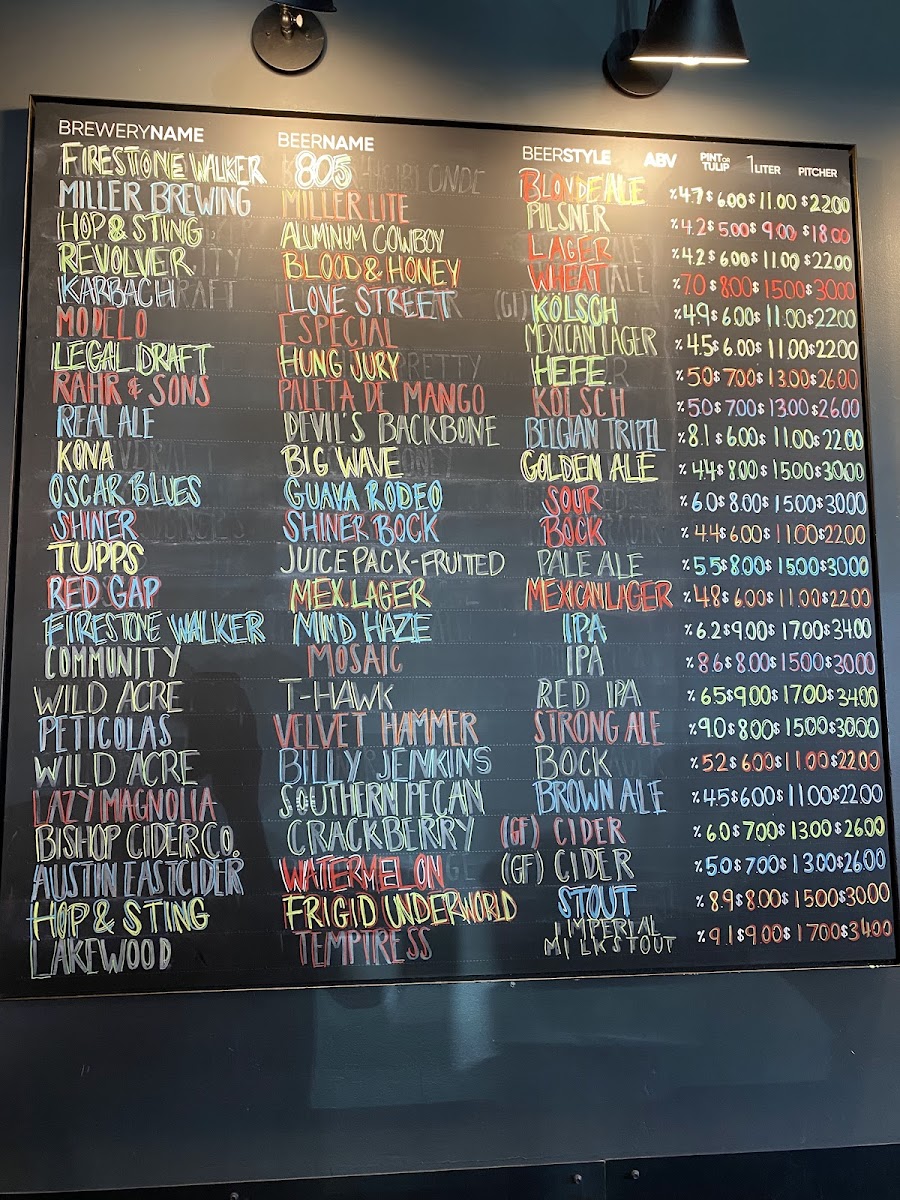 BREWERYNAME BEERNAME BEERSTYLE ABV PINT OR TULIP 1LITER PITCHER
FIRESTONE WALKER 805 BLONDE ALE %4.7 $6.00 $11.00 $22.00
MILLER BREWING MILLER LITE PILSNER %4.2 $5.00 $9.00 $18.00
HOP & STING ALUMINUM COWBOY LAGER %4.2 $6.00 $11.00 $22.00
REVOLVER BLOOD & HONEY WHEAT %7.0 $8.00 $15.00 $30.00
KARBACH LOVE STREET KÖLSCH %4.9 $6.00 $11.00 $22.00
MODELO ESPECIAL MEXICAN LAGER %4.5 $6.00 $11.00 $22.00
LEGAL DRAFT HUNG JURY HEFE. %5.0 $7.00 $13.00 $26.00
RAHR & SONS PALETA DE MANGO KOLSCH %5.0 $7.00 $13.00 $26.00
REAL ALE DEVIL'S BACKBONE BELGIAN TRIPEL %8.1 $6.00 $11.00 $22.00
KONA BIG WAVE GOLDEN ALE %4.4 $8.00 $15.00 $30.00
OSCAR BLUES GUAVA RODEO SOUR %6.0 $8.00 $15.00 $30.00
SHINER SHINER BOCK BOCK %4.4 $6.00 $11.00 $22.00
TUPPS JUICE PACK-FRUITED PALE ALE %5.5 $8.00 $15.00 $30.00
RED GAP MEX. LAGER MEXICAN LAGER %4.8 $6.00 $11.00 $22.00
FIRESTONE WALKER MIND HAZE IPA %6.2 $9.00 $17.00 $34.00
COMMUNITY MOSAIC IPA %8.6 $8.00 $15.00 $30.00
WILD ACRE T-HAWK RED IPA %6.5 $9.00 $17.00 $34.00
PETICOLAS VELVET HAMMER STRONG ALE %9.0 $8.00 $15.00 $30.00
WILD ACRE BILLY JENKINS BOCK %5.2 $6.00 $11.00 $22.00
LAZY MAGNOLIA SOUTHERN PECAN BROWN ALE %4.5 $6.00 $11.00 $22.00
BISHOP CIDER CO. CRACKBERRY (GF) CIDER %6.0 $7.00 $13.00 $26.00
AUSTIN EASTCIDER WATERMELON (GF) CIDER %5.0 $7.00 $13.00 $26.00
HOP & STING FRIGID UNDERWORLD STOUT %8.9 $8.00 $15.00 $30.00
LAKEWOOD TEMPTRESS IMPERIAL MILK STOUT %9.1 $9.00 $17.00 $34.00